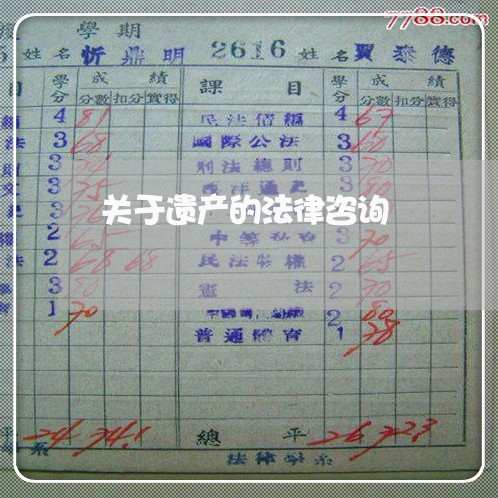 7788.com
學期
5 姓名 忻鼎明 2616 姓名 賈泰德
目 學分 成績 課目 學分 成績
分數 扣分 實得 分數 扣分 實得
4 81 民法債編 4 67
法 3 68 國際公法 3 60
3 刑法總則 3 70
3 75 西洋通史 3 80
关于遗产的法律咨询
2 65 3 70
法 2 68 68 民法物權 2 65
3 80 憲法 2 70
1 70 2 80
普通體育 1 78
24 74.1 總平 26 72.3
系 法律學系